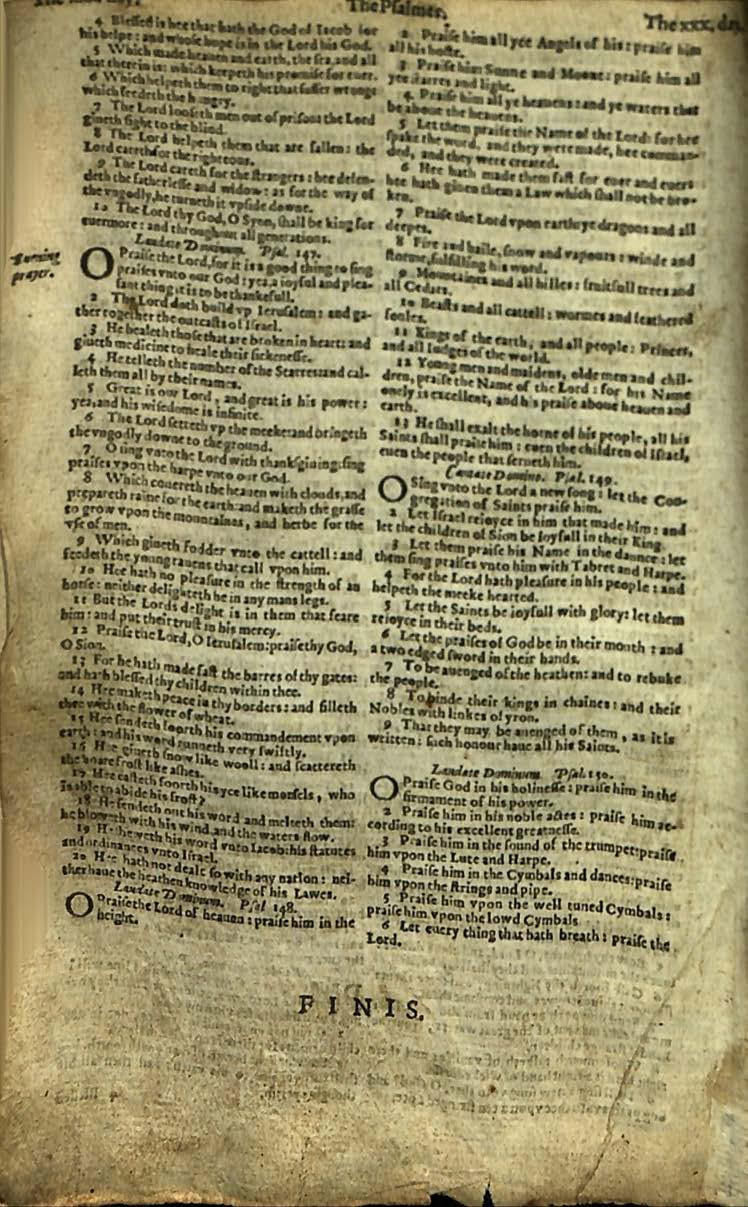 The Psalmes.
The xxx. day
4 Blessed is hee that hath the God of Iacob for
his helpe: and whose hope is in the Lord his God.
5 Which made heauen and earth, the sea, and all
that therein is: which keepeth his promise for euer.
6 Which helpeth them to right that suffer wronge:
which feedeth the hungry.
7 The Lord looseth men out of prison: the Lord
giueth sight to the blind.
8 The Lord helpeth them that are fallen: the
Lord careth for the righteous.
9 The Lord careth for the strangers: hee defen-
deth the fatherlesse and widow: as for the way of
the vngodly, he turneth it vpside downe.
10 The Lord thy God, O Syon, shall be king for
euermore: and throughout all generations.
Laudate Dominum. Psal. 147.
prayer.
O Praise the Lord, for it is a good thing to sing
praises vnto our God: yea, a ioyful and plea-
sant thing it is to be thankefull.
2 The Lord doth build vp Ierusalem: and ga-
ther together the outcasts of Israel.
3 He healeth those that are broken in heart: and
giueth medicine to heale their sickenesse.
4 He telleth the number of the Starres: and cal-
leth them all by their names.
5 Great is our Lord, and great is his power:
yea, and his wisedome is infinite.
6 The Lord setteth vp the meeke: and bringeth
the vngodly downe to the ground.
7 O sing vnto the Lord with thanksgiuing: sing
praises vpon the harpe vnto our God.
8 Which couereth the heauen with clouds, and
prepareth raine for the earth: and maketh the grasse
to grow vpon the mountaines, and herbe for the
vse of men.
9 Which giueth fodder vnto the cattell: and
feedeth the young rauens that call vpon him.
10 Hee hath no pleasure in the strength of an
horse: neither delighteth he in any mans legs.
11 But the Lords delight is in them that feare
him: and put their trust in his mercy.
12 Praise the Lord, O Ierusalem: praise thy God,
O Sion.
13 For he hath made fast the barres of thy gates:
and hath blessed thy children within thee.
14 Hee maketh peace in thy borders: and filleth
thee with the flower of wheat.
15 Hee sendeth foorth his commandement vpon
earth: and his word runneth very swiftly.
16 He giueth snow like wooll: and scattereth
the hoare frost like ashes.
17 Hee casteth foorth his yce like morsels, who
is able to abide his frost?
18 He sendeth out his word and melteth them:
he bloweth with his wind and the waters flow.
19 He sheweth his word vnto Iacob: his statutes
and ordinances vnto Israel.
20 Hee hath not dealt so with any nation: nei-
ther haue the heathen knowledge of his Lawes.
Laudate Dominum. Psal 148.
O Praise the Lord of heauen: praise him in the
height.
2 Praise him all yee Angels of his: praise him
all his hoste.
3 Praise him Sunne and Moone: praise him all
yee starres and light.
4 Praise him all ye heauens: and ye waters that
be aboue the heauens.
5 Let them praise the Name of the Lord: for hee
spake the word, and they were made, hee comman-
ded, and they were created.
6 Hee hath made them fast for euer and euer:
hee hath giuen them a Law which shall not be bro-
ken.
7 Praise the Lord vpon earth: ye dragons and all
deepes.
8 Fire and haile, snow and vapours: winde and
storme, fulfilling his word.
9 Mountaines and all hilles: fruitfull trees and
all Cedars.
10 Beasts and all cattell: wormes and feathered
foules.
11 Kings of the earth, and all people: Princes,
and all Iudges of the world.
12 Young men and maidens, olde men and chil-
dren, praise the Name of the Lord: for his Name
onely is excellent, and his praise aboue heauen and
earth.
13 He shall exalt the horne of his people, all his
Saints shall praise him: euen the children of Israel,
euen the people that serueth him.
Cantate Domino. Psal. 149.
O Sing vnto the Lord a new song: let the Con-
gregation of Saints praise him.
2 Let Israel reioyce in him that made him: and
let the children of Sion be ioyfull in their King.
3 Let them praise his Name in the daunce: let
them sing praises vnto him with Tabret and Harpe.
4 For the Lord hath pleasure in his people: and
helpeth the meeke hearted.
5 Let the Saints be ioyfull with glory: let them
reioyce in their beds.
6 Let the praises of God be in their mouth: and
a two edged sword in their hands.
7 To be auenged of the heathen: and to rebuke
the people.
8 To binde their kings in chaines: and their
Nobles with linkes of yron.
9 That they may be auenged of them, as it is
written: such honour haue all his Saints.
Laudate Dominum Psal. 150.
O Praise God in his holinesse: praise him in the
firmament of his power.
2 Praise him in his noble actes: praise him ac-
cording to his excellent greatnesse.
3 Praise him in the sound of the trumpet: praise
him vpon the Lute and Harpe.
4 Praise him in the Cymbals and dances: praise
him vpon the strings and pipe.
5 Praise him vpon the well tuned Cymbals:
praise him vpon the lowd Cymbals
6 Let euery thing that hath breath: praise the
Lord.
FINIS.